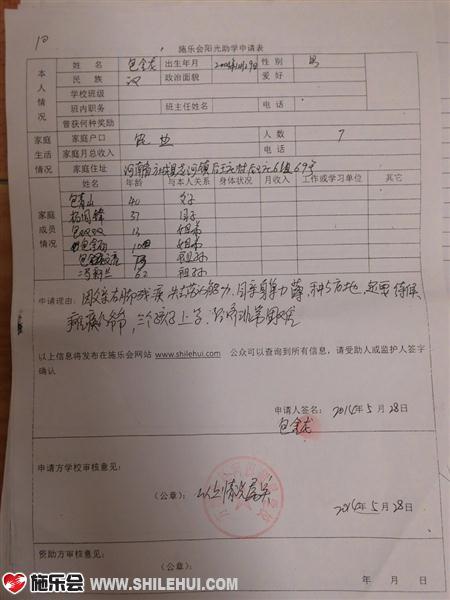 10
施乐会阳光助学申请表
本人情况
姓名 包金龙 出生年月 性别 男
民族 汉 政治面貌 爱好
学校班级
班内职务 班主任姓名 电话
曾获何种奖励
家庭生活情况
家庭户口 农业 人数 7
家庭月总收入 电话
家庭住址 河南省方城县 河镇 村 6组69号
家庭成员情况
姓名 年龄 与本人关系 身体状况 月收入 工作或学习单位 其它
包 山 40 父子
杨 锋 37 母子
包双双 13 姐弟
包金 10 姐弟
包 祖孙
冯 兰 62 祖孙
申请理由:因父亲右脚残疾 劳动力,母亲身单力薄,种5亩地,还要侍候
瘫痪爷爷,三个孩子上学,经济非常困难
以上信息将发布在施乐会网站 www.shilehui.com 公众可以查询到所有信息,请受助人或监护人签字
确认
申请人签名: 2014年5月28日
包金龙
申请方学校审核意见:
(公章): 以上情况属实
2014年5月28日
资助方审核意见:
(公章): 年 月 日
施乐会 WWW.SHILEHUI.COM